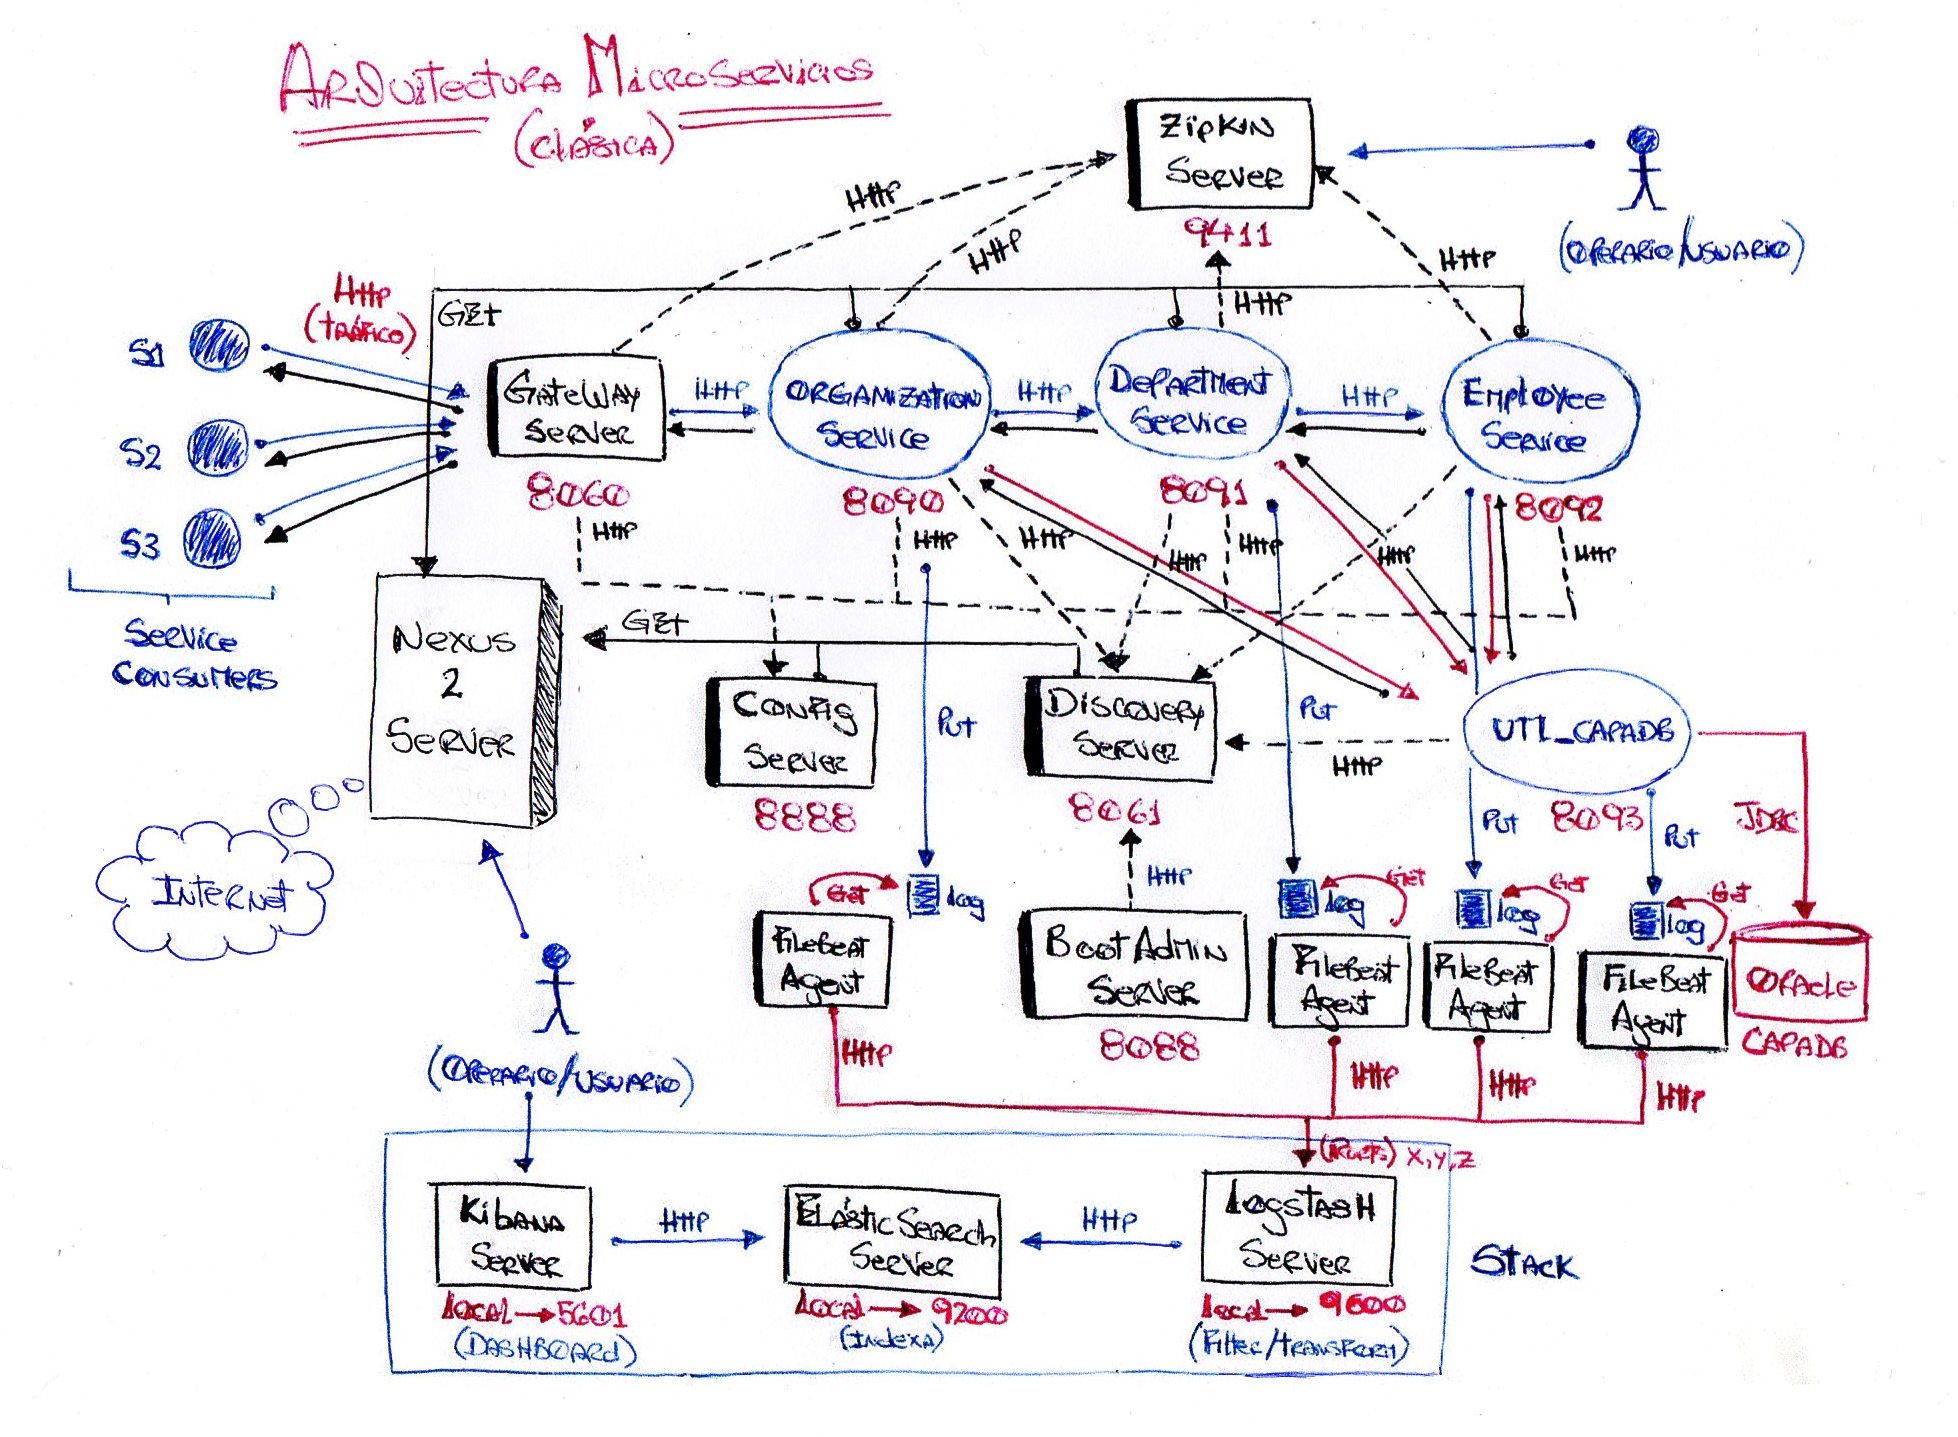 ARQuitectura Microservicios
(clásica)
Zipkin
Server
9411
(operario/usuario)
HTTP
HTTP
HTTP
HTTP
GET
HTTP
(tráfico)
S1
S2
S3
Service
Consumers
Gateway
Server
8060
HTTP
Organization
Service
8090
HTTP
Department
Service
8091
HTTP
Employee
Service
8092
HTTP
HTTP
HTTP
HTTP
HTTP
HTTP
HTTP
Nexus
2
Server
GET
Config
Server
8888
Put
Discovery
Server
8061
Put
HTTP
UTI_CAPADB
8093
Put
Put
JDBC
Internet
HTTP
Get
log
Get
log
Get
log
Get
log
FileBeat
Agent
BootAdmin
Server
8088
FileBeat
Agent
FileBeat
Agent
FileBeat
Agent
Oracle
CAPADB
(operario/usuario)
HTTP
HTTP
HTTP
HTTP
(Ports) X,Y,Z
Kibana
Server
local → 5601
(Dashboard)
HTTP
ElasticSearch
Server
local → 9200
(Indexa)
HTTP
Logstash
Server
local → 9600
(Filter/transform)
Stack